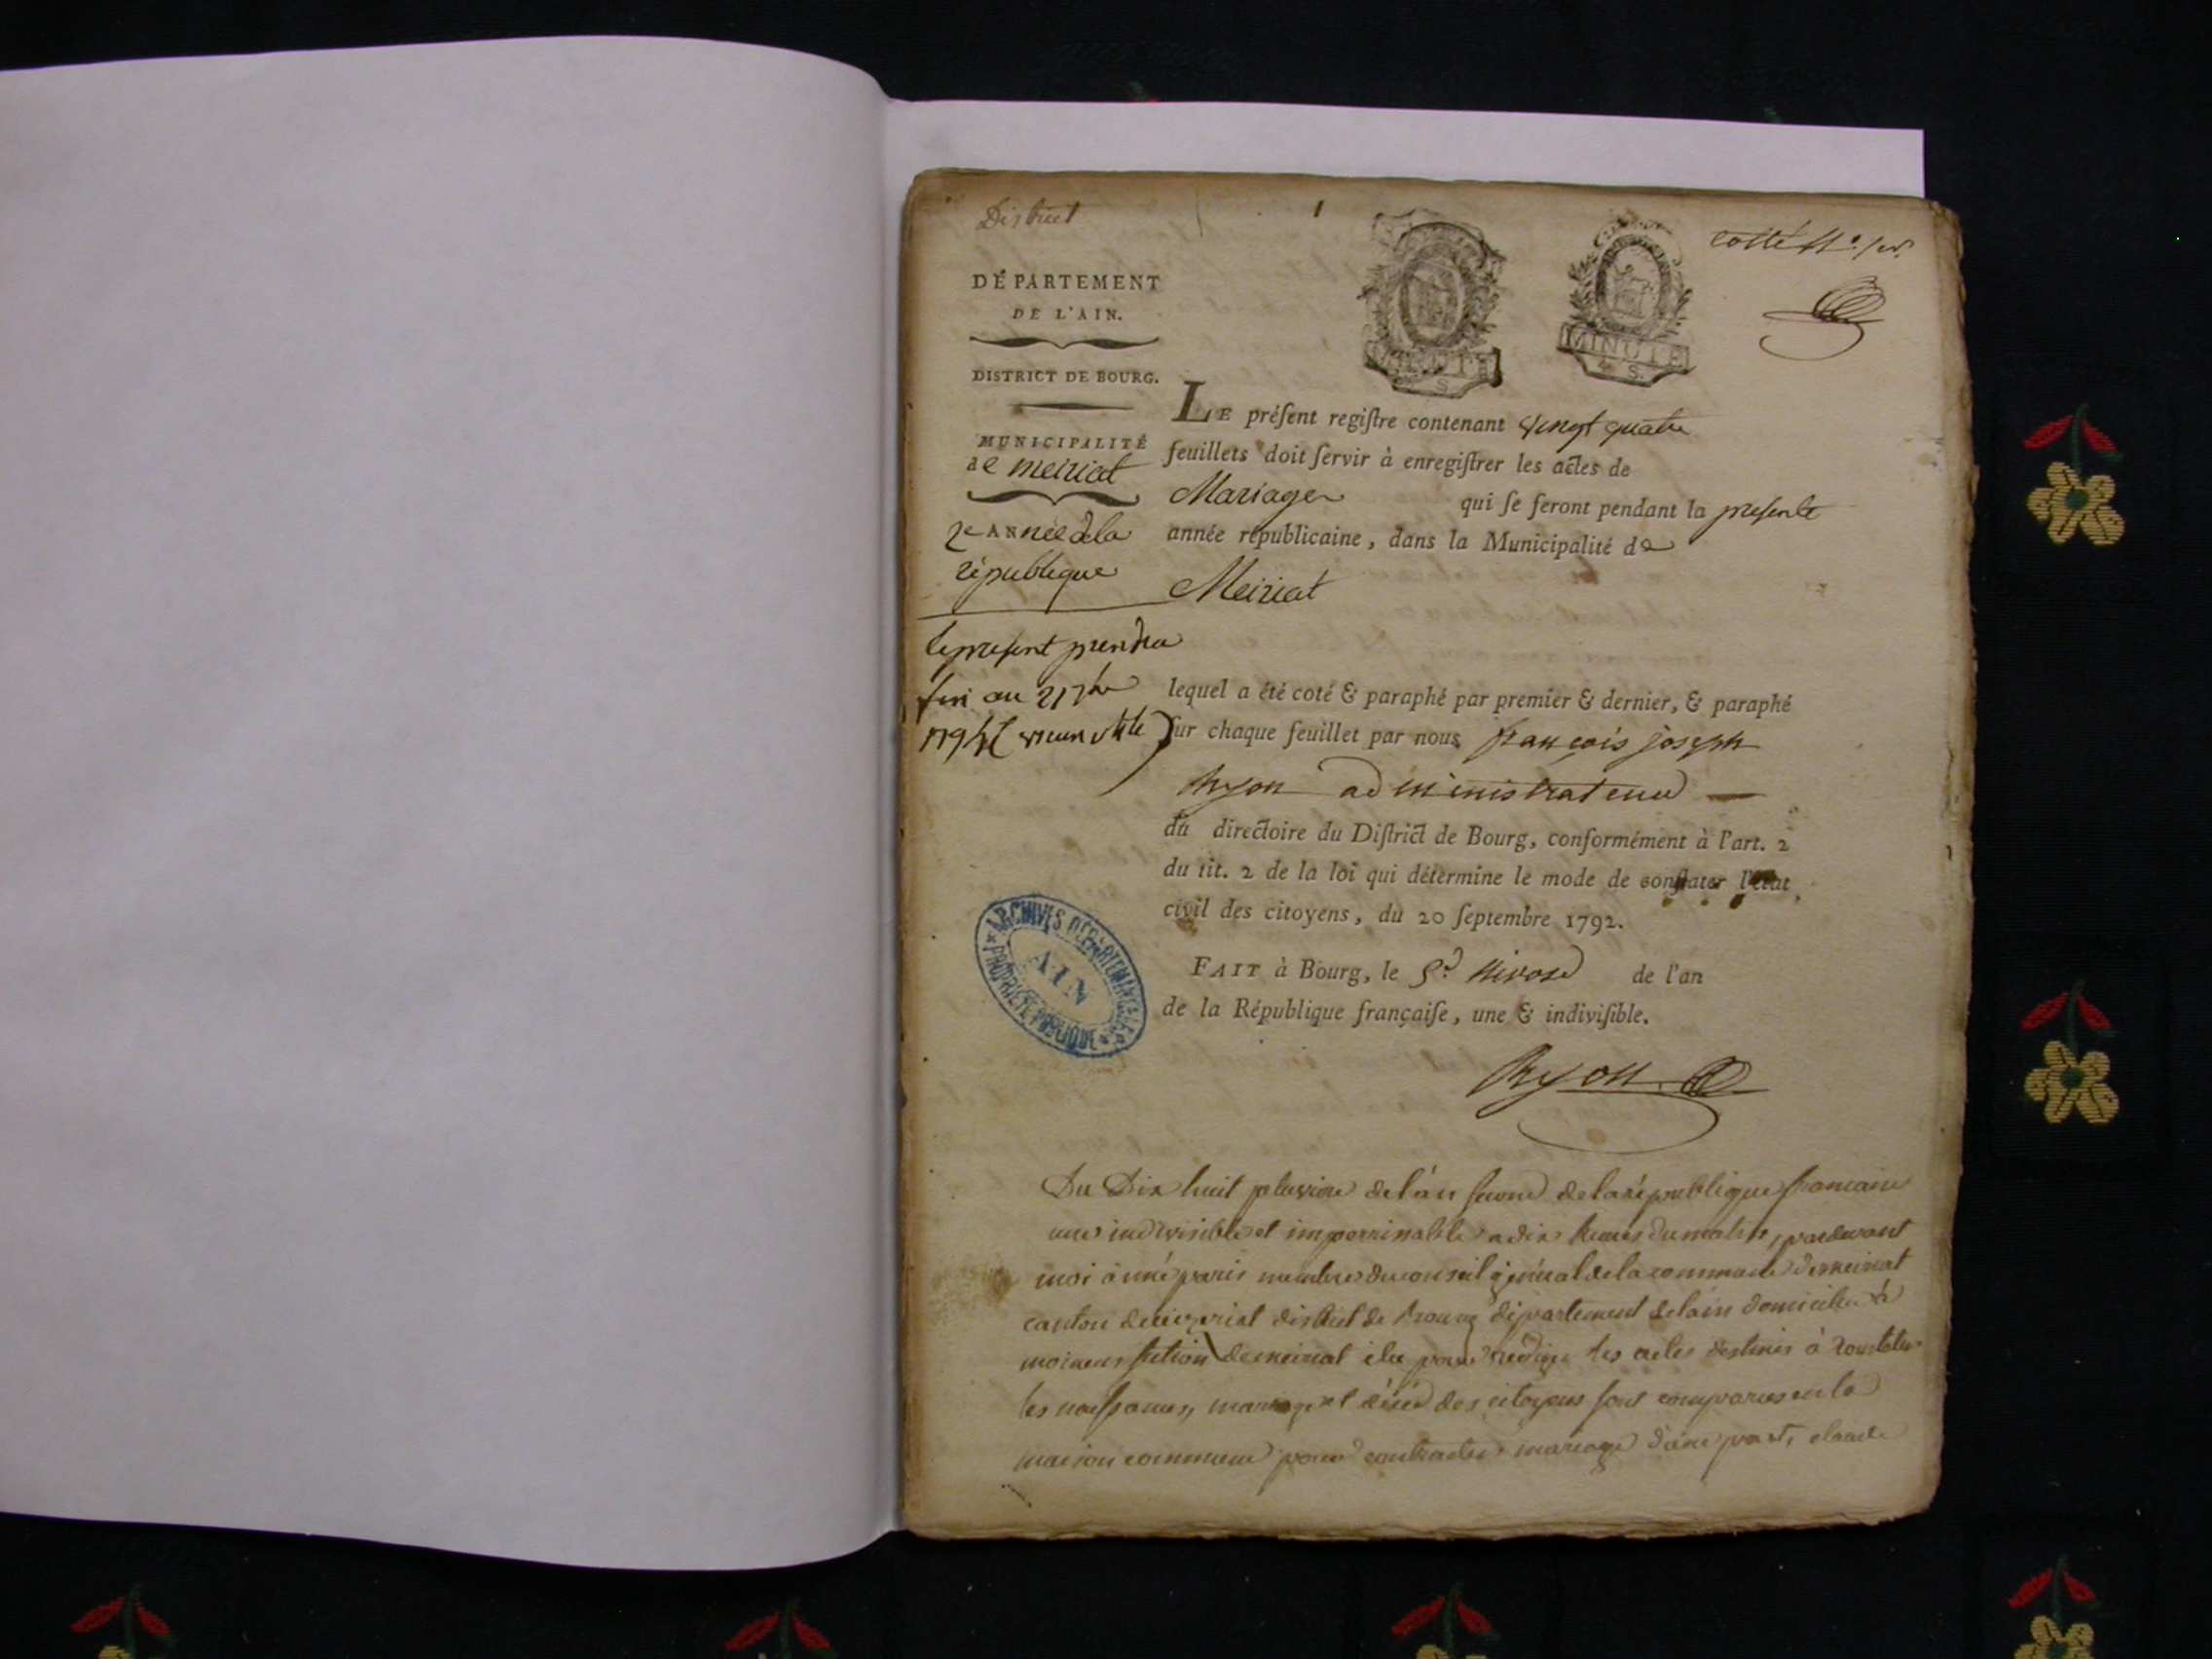 District
1
cotté
DÉPARTEMENT
DE L'AIN.
DISTRICT DE BOURG.
MUNICIPALITÉ
de meiriat
2e ANnée de la
république
le present prendra
fin au 21 7bre
1794 (vieux stile)
MINUTE
4 S.
MINUTE
4 S.
LE préſent regiſtre contenant vingt quatre
feuillets doit ſervir à enregiſtrer les actes de
Mariage qui ſe feront pendant la presente
année républicaine, dans la Municipalité de
Meiriat
lequel a été coté & paraphé par premier & dernier, & paraphé
ſur chaque feuillet par nous françois joseph
Ryon administrateur
du directoire du Diſtrict de Bourg, conformément à l'art. 2
du tit. 2 de la loi qui détermine le mode de conſtater l'état
civil des citoyens, du 20 ſeptembre 1792.
FAIT à Bourg, le 5e nivose de l'an
de la République françaiſe, une & indiviſible.
Ryon
ARCHIVES DÉPARTEMENTALES
AIN
PROPRIÉTÉ PUBLIQUE
Du Dix huit pluviose de l'an second de la république francaise
une indivisible et imperissable a dix heures du matin, pardevant
moi aimé paris membre du conseil général de la commune de meiriat
canton de district de bourg département de lain domicilié à
section de meiriat élu pour rediger les actes destinés à constater
les naissances, mariage et décès des citoyens sont comparus en la
maison commune pour contracter mariage d'une part, claude